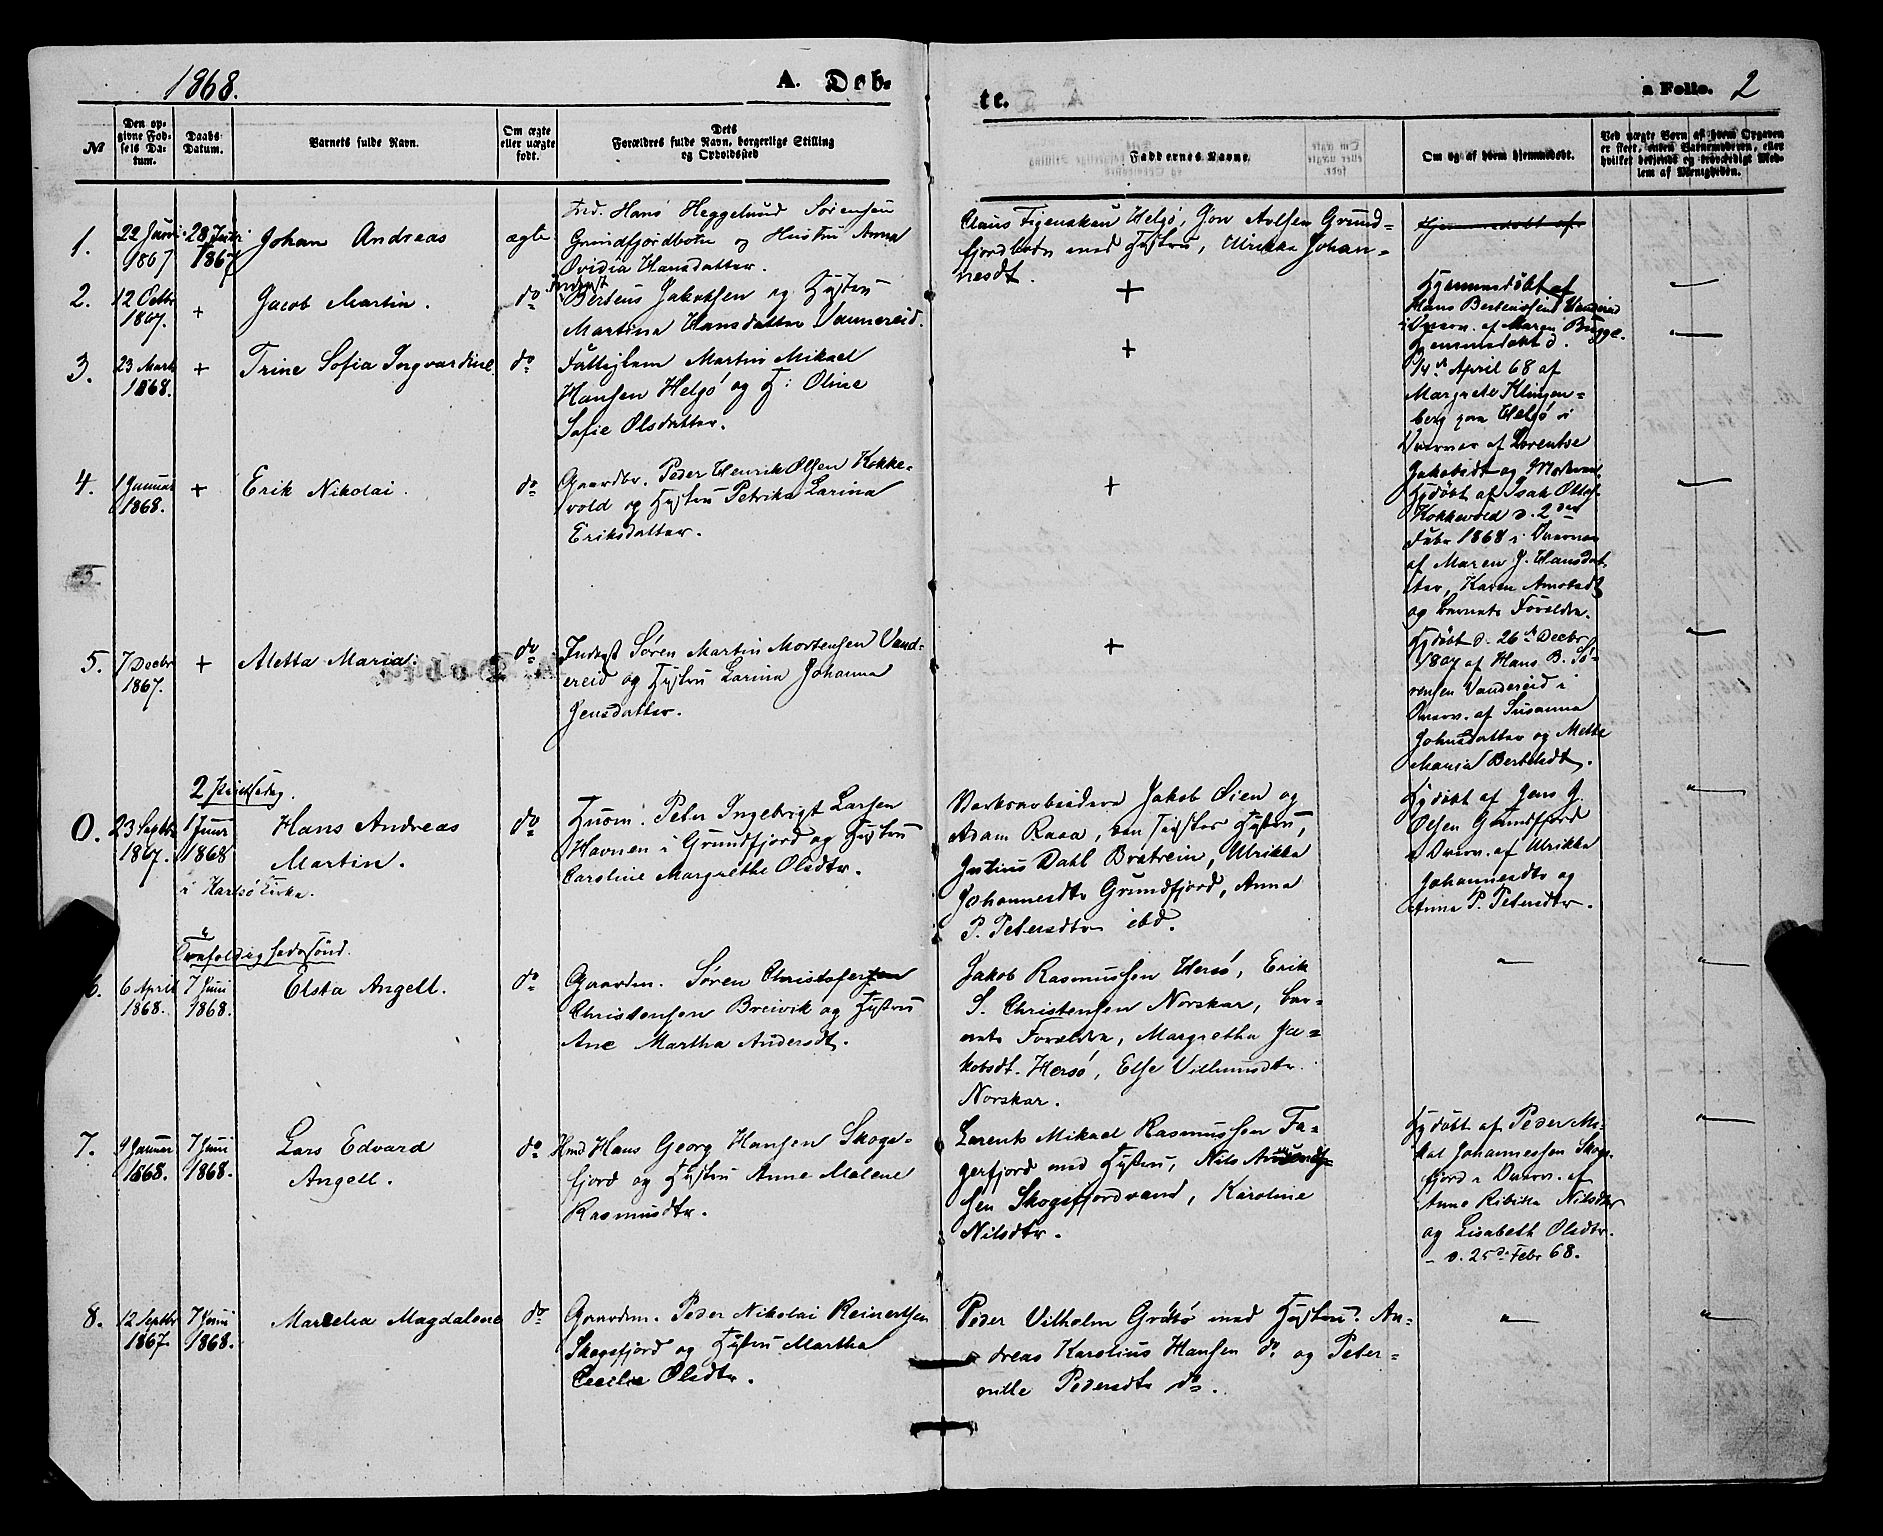 1868.
A. Døb-
te.
a Folio. 2
№
Den op-
givne Fød-
sels Da-
tum.
Daabs-
Datum.
Barnets fulde Navn.
Om ægte
eller uægte
født.
Dets
Forældres fulde Navn, borgerlige Stilling
og Opholdssted
Faddernes Navne.
Om og af hvem hjemmedøbt.
Ved uægte Børn af hvem Opgaven
er skeet, enten Barnemoderen, eller
hvilket bekjendt og troværdigt Med-
lem af Menigheden.
1.
22 Juni
1867
28 Juli
1867
Johan Andreas
ægte
Ind. Hans Heggelund Sørensen
Grundfjordbotn og Hustru Anna
Ovidia Hansdatter.
Claus Figenskau Helgø, Jon Aolsen Grund-
fjordbotn med Hustru, Ulrikka Johan-
nesdt.
Hjemmedøbt af
2.
12 Octbr
1867
+
Jacob Martin.
do
Inderst
Berteus Jakobsen og Hustru
Martina Hansdatter Vannereid.
+
Hjemmedøbt af
Hans Berteussen Vandereid
i Overv. af Maren Bugge.
3.
23 Marts
1868.
+
Trine Sofia Ingvardine
do
Fattiglem Martin Mikael
Hansen Helgø og H: Oline
Sofie Olsdatter.
+
Hjemmedøbt d.
April 68 af
Margrete Klingen-
berg paa Helgø i
Overvær af Lorentse
Jakobsdt og
4.
1 Januar
1868.
+
Erik Nikolai.
do
Gaardbr. Peder Henrik Olsen Kokke-
vold og Hustru Petrika Larina
Eriksdatter.
+
Hjdøbt af Isak Ottes.
Kokkevold d. 2den
Febr 1868 i Overvær
af Maren J. Hansdat-
ter, Karen Arnotsdt
og Barnets Forældre.
5.
5.
7 Decbr
1867.
+
Aletta Maria.
do
Inderst Søren Martin Mortensen Vand-
ereid og Hustru Larina Johanna
Jensdatter.
+
Hjdøbt d. 26de Decbr
1867 af Hans B. Sö-
rensen Vandereid i
Overv. af Susanna
Johnsdatter og Mette
Maria Bertelsdt.
2 Pintsedag.
0.
23 Septbr
1867.
1 Juni
1868
i Karlsø Kirke.
Hans Andreas
Martin.
do
Husm. Peter Ingebrigt Larsen
Havnen i Grundfjord og Hustru
Caroline Margrethe Olsdtr.
Jakob Øien og
Adam Rasa,
Justius Dahl Bratrein, Ulrikka
Johannesdtr Grundfjord, Anna
P. Petersdtr ibd.
Hjdøbt af Jens J.
Olsen Grundfjord
i Overv. af Ulrikka
Johannesdtr og
Anna P. Petersdtr.
Trefoldighedssönd.
6.
6 April
1868.
7 Juni
1868.
Elsta Angell.
do
Gaardm. Søren Christofersen
Christensen Breivik og Hustru
Ane Martha Andersdt.
Jakob Rasmussen Hersø, Erik
S. Christensen Norskar, Bar-
nets Forældre, Margretha Ja-
kobsdt. Hersø, Else Villumsdtr.
Norskar.
7.
9 Januar
1868.
7 Juni
1868.
Lars Edvard
Angell.
do
Hmd Hans Georg Hansen Skogs-
fjord og Hustru Anne Malene
Rasmusdtr.
Lorents Mikael Rasmussen Fa-
gerfjord med Hustru, Nils
sen Skogsfjordvand, Karoline
Nilsdtr.
Hjdøbt af Peder Mi-
kal Johannessen Skogs-
fjord i Overv. af
Anne Ribikka Nilsdtr
og Lisabeth Olsdtr.
d. 25de Febr 68.
8.
12 Septbr
1867.
7 Juni
1868.
Marselia Magdalene
do
Gaardm. Peder Nikolai Reinertsen
Skogsfjord og Hustru Martha
Cecelie Olsdtr.
Peder Vilhelm Grötö med Hustru. An-
dreas Karolius Hansen do. og Peter-
nille Pedersdtr do.